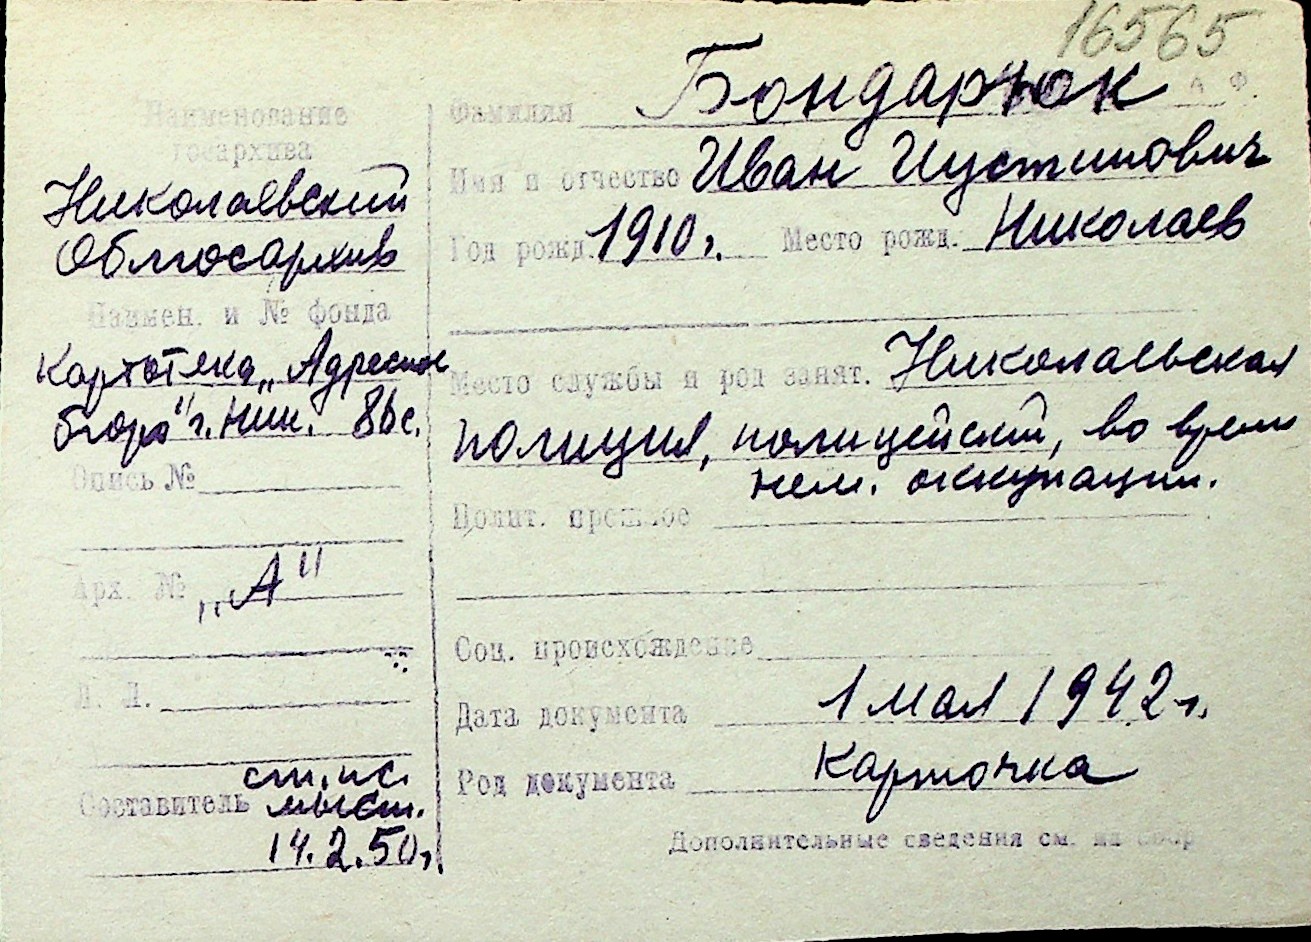 16565
Наименование
госархива
Николаевский
Облгосархив
Наимен. и № фонда
Картотека „Адресное
бюро" г. Ник.
Опись №
Арх. № „А"
Л. Л.
ст. ис.
Составитель
14.2.50 г.
Фамилия Бондарюк
Имя и отчество Иван Иустинович
Год рожд. 1910 г. Место рожд. Николаев
Место службы и род занят. Николаевская
полиция, полицейский, во время
нем. оккупации.
Полит. прошлое
Соц. происхождение
Дата документа 1 мая 1942 г.
Род документа Карточка
Дополнительные сведения см. на обор